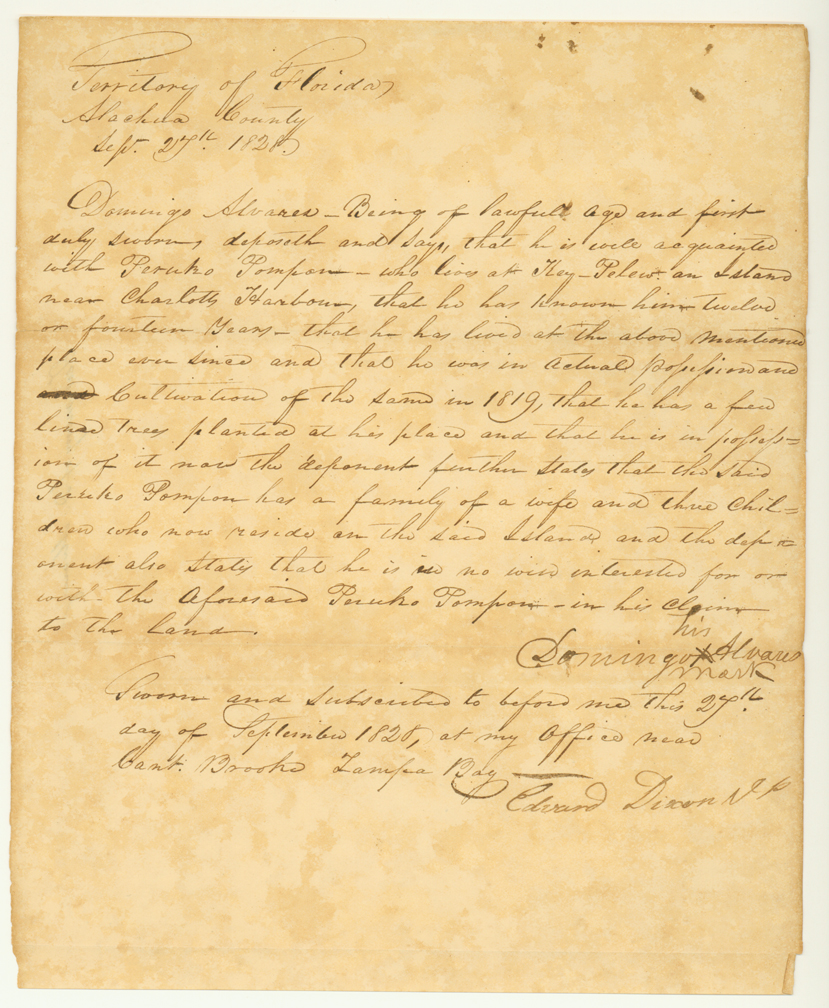 Territory of Florida
Alachua County
Sept. 27th. 1828.
Domingo Alvares - Being of lawfull age and first
duly sworn, deposeth and says, that he is well acquainted
with Peruko Pompon - who lives at Key-Pelew an Island
near Charlotts Harbour, that he has known him twelve
or fourteen Years - that he has lived at the above mentioned
place ever since and that he was in actual possession and
and Cultivation of the same in 1819, that he has a few
lime Trees planted at his place and that he is in possess=
ion of it now the deponent further states that the said
Peruko Pompon has a family of a wife and three Chil=
dren who now reside on the said Island and the dep=
onent also states that he is in no wise interested for or
with the aforesaid Peruko Pompon - in his Claim
to the Land.
his
Domingo X Alvares
mark
Sworn and subscribed to before me this 27th.
day of September 1828, at my Office near
Cant. Brooke Tampa Bay
Edward Dixon J P